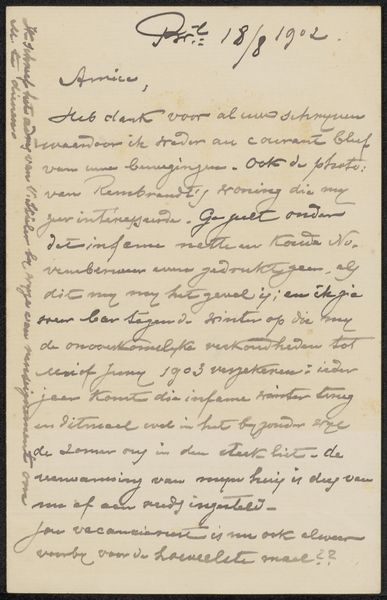 Brl 18/8 1902
Amice,
Heb dank voor al uw schrijven
waardoor ik weder au courant bleef
van uwe bewegingen. Ook de photo:
van Rembrandt's woning die my
zeer interesseerde. Ge zult onder
dit infame natte en koude No-
vemberweer even gedrukt zyn, als
dit my my het geval is; en ik zie
zeer tegen de winter op die my
de onoverkomelyke verkoudheden tot
Mei of Juny 1903 verzekeren: ieder
jaar komt die infame winter terug
en ditmaal wel in het byzonder wyl
de zomer ons in den steek liet. de
verwarming van myn huis is dus van
nu af aan reeds ingesteld.
Jou vacantierust is nu ook alweer
voorby voor de hoeveelste maal??
Ik schreef het adres van by wyze van renseignement om
U te dienen